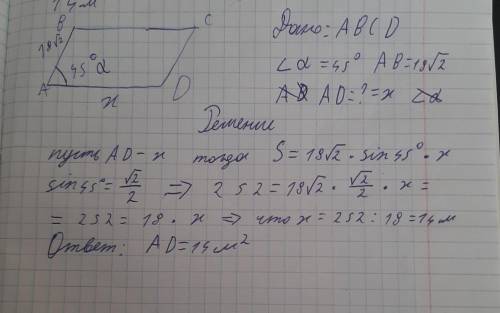 14м
B C
18√2
45° α
A D
x
Дано: ABCD
∠α = 45° AB = 18√2
AD = ? = x ∠α
Решение
пусть AD - x тогда S = 18√2 · sin 45° · x
sin 45° = √2/2 ⇒ 252 = 18√2 · √2/2 · x =
= 252 = 18 · x ⇒ что x = 252 : 18 = 14 м
Ответ: AD = 14 м²